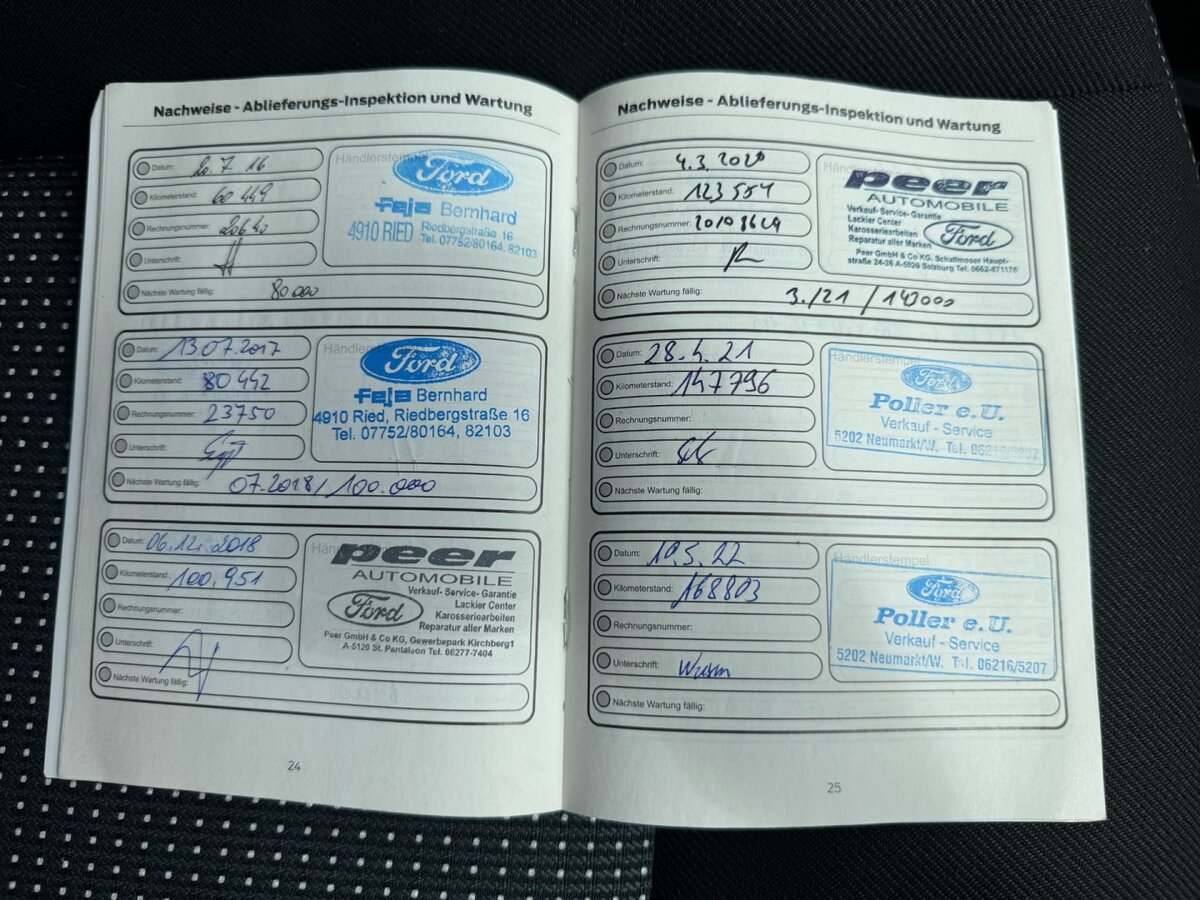 Nachweise - Ablieferungs-Inspektion und Wartung
Datum: 20.7.16
Kilometerstand: 60 449
Rechnungsnummer: 20640
Unterschrift:
Nächste Wartung fällig: 80000
Händlerstempel
Ford
feja Bernhard
4910 RIED Riedbergstraße 16
Tel. 07752/80164, 82103
Datum: 13.07.2017
Kilometerstand: 80 442
Rechnungsnummer: 23750
Unterschrift:
Nächste Wartung fällig: 07.2018/100.000
Ford
feja Bernhard
4910 Ried, Riedbergstraße 16
Tel. 07752/80164, 82103
Datum: 06.12.2018
Kilometerstand: 100.951
Rechnungsnummer:
Unterschrift:
Nächste Wartung fällig:
peer
AUTOMOBILE
Ford
Verkauf- Service- Garantie
Lackier Center
Karosseriearbeiten
Reparatur aller Marken
Peer GmbH & Co KG, Gewerbepark Kirchberg1
A-5120 St. Pantaleon Tel. 06277-7404
24
Nachweise - Ablieferungs-Inspektion und Wartung
Datum: 4.3.2020
Kilometerstand: 123 551
Rechnungsnummer:
Unterschrift:
Nächste Wartung fällig: 3./21 / 140000
peer
AUTOMOBILE
Verkauf- Service- Garantie
Lackier Center
Karosseriearbeiten
Reparatur aller Marken
Ford
Peer GmbH & Co KG, Schallmoser Haupt-
straße 24-26 A-5020 Salzburg Tel. 0662-871176
Datum: 28.4.21
Kilometerstand: 147796
Rechnungsnummer:
Unterschrift:
Nächste Wartung fällig:
Händlerstempel
Ford
Poller e.U.
Verkauf - Service
5202 Neumarkt/W. Tel. 06216/5207
Datum: 19.5.22
Kilometerstand: 168803
Rechnungsnummer:
Unterschrift:
Nächste Wartung fällig:
Händlerstempel
Ford
Poller e.U.
Verkauf - Service
5202 Neumarkt/W. Tel. 06216/5207
25